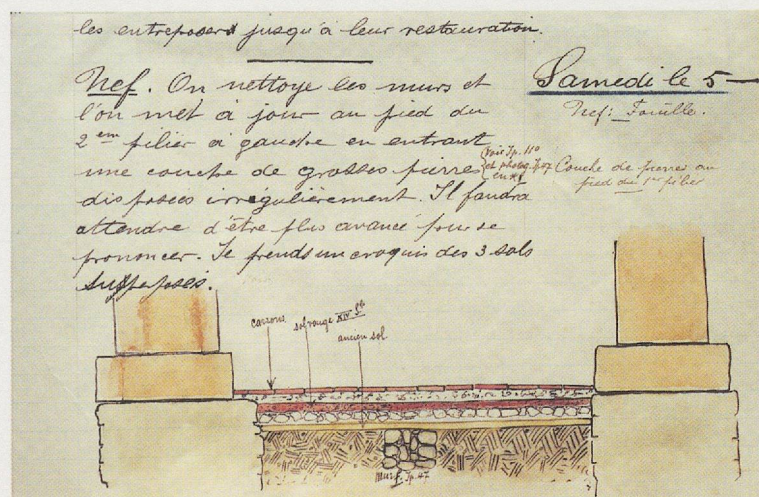 les entreposer jusqu'à leur restauration.
Nef. On nettoye les murs et
l'on met à jour au pied du
2em pilier à gauche en entrant
une couche de grosses pierres
disposées irrégulièrement. Il faudra
attendre d'être plus avancé pour se
prononcer. Je prends un croquis des 3 sols
superposés.
(voir Jp. 110
et photog. Jp 47
Samedi le 5
Nef: Fouille.
Couche de pierres au
pied du 1er pilier
carrons
sol rouge XIV S.
ancien sol
Mur Jp. 47